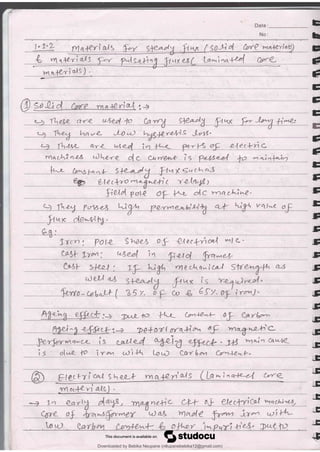 Date:
No:
1.3.2 Materials for steady flux (solid core materials)
& materials for pulsating fluxes (Laminated core
materials).
① Solid core material :→
↳ These are used to carry steady flux for long time.
↳ They have low hysteresis loss.
↳ These are used in the parts of electric
machines where dc current is passed to maintain
the constant steady flux such as
electromagnetic relays,
field pole of the dc machine.
↳ They posses high permeability at high value of
flux density.
Eg:
Iron: Pole shoes of electrical m/c.
Cast Iron: used in field frames
Cast steel: If high mechanical strength as
well as steady flux is required.
ferro-cobalt (35% of co & 65% of iron).
Ageing effect :→ Due to the content of Carbon
Ageing effect :→ Detorioration of magnetic
performance is called ageing effect. Its main cause
is due to iron with low Carbon Content.
② Electrical sheet materials (Laminated core
materials).
→ In early days, magnetic ckt of electrical machines,
core of transformer was made from iron with
low Carbon content & other impurities. Due to
This document is available on studocu
Downloaded by Bebika Neupane (nitupanebebika12@gmail.com)